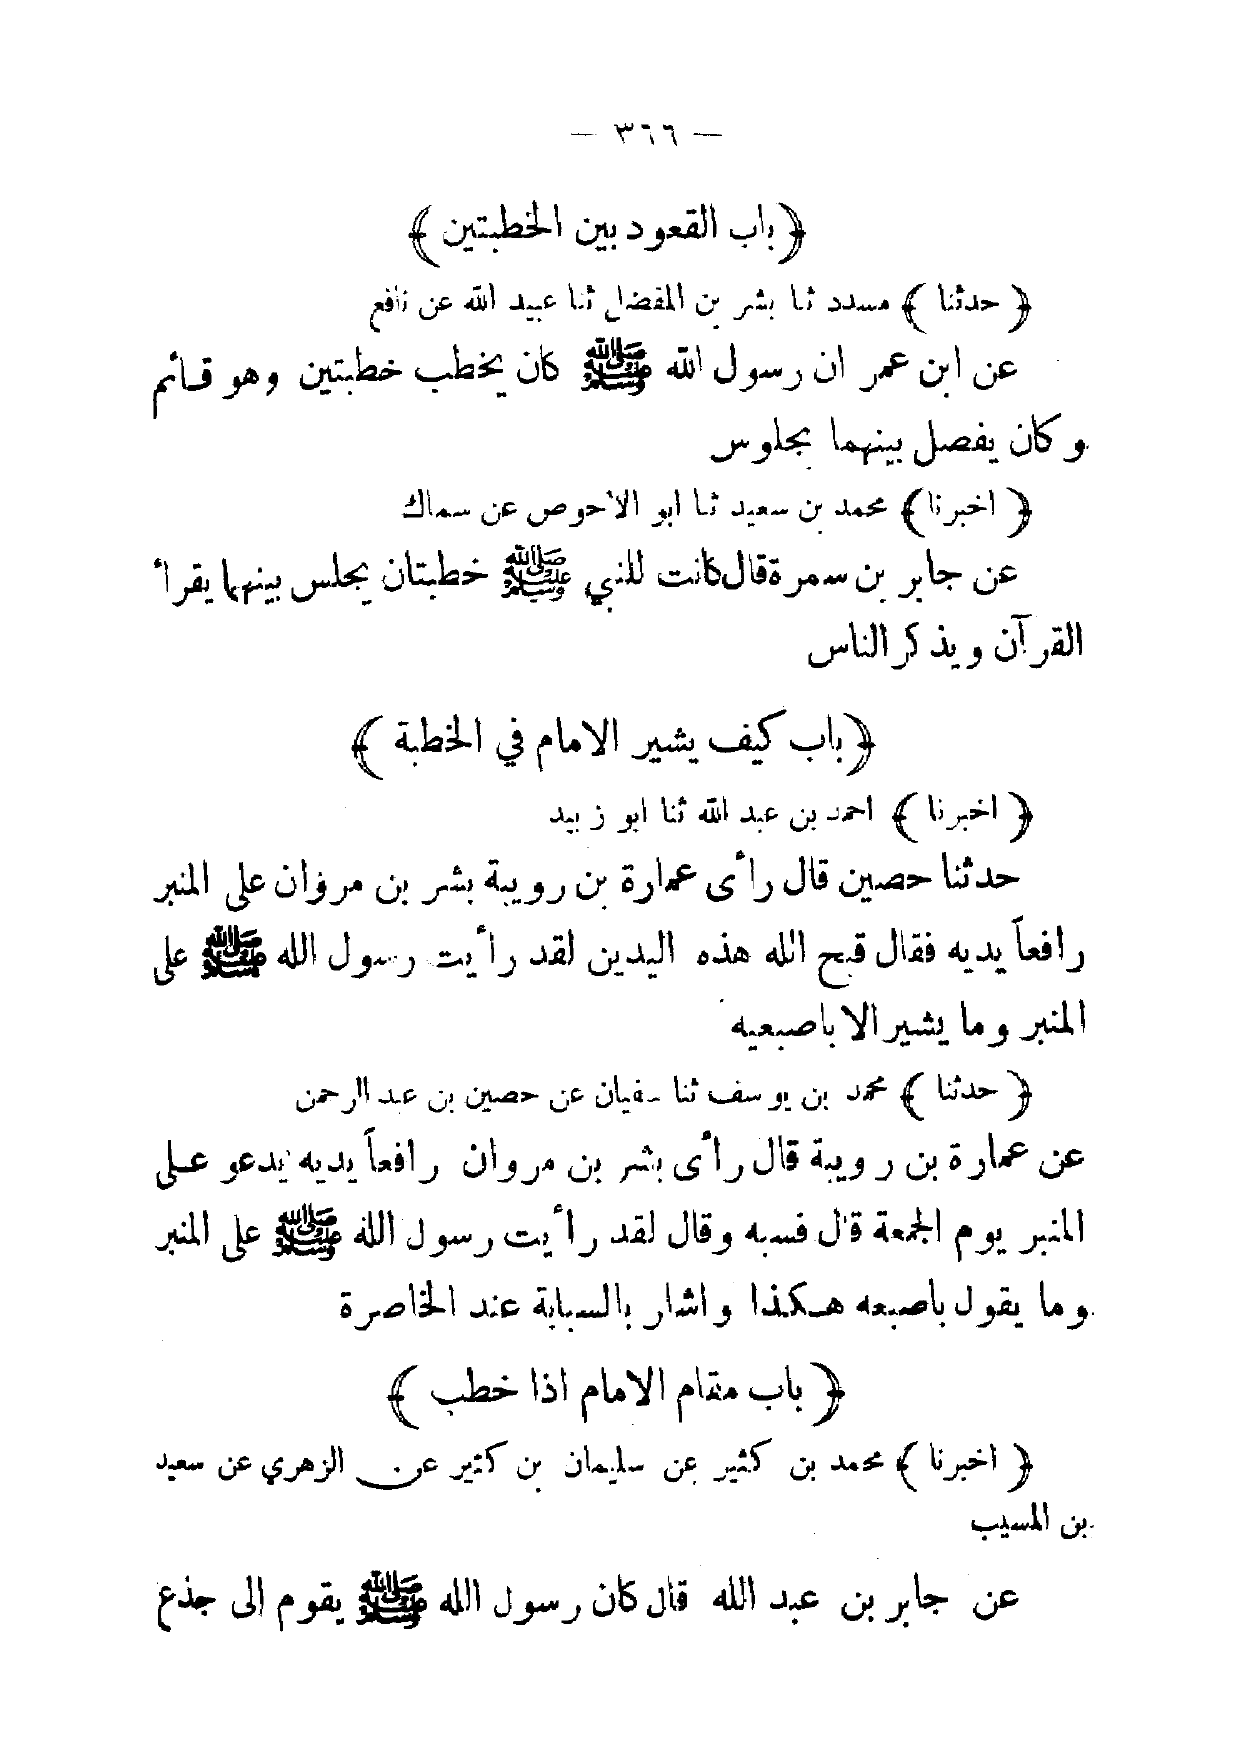 — ٣٦٦ —
﴿ باب القعود بين الخطبتين ﴾
﴿ حدثنا ﴾ مسدد ثنا بشر بن المفضل ثنا عبيد الله عن نافع
عن ابن عمر ان رسول الله ﷺ كان يخطب خطبتين وهو قائم
وكان يفصل بينهما بجلوس
﴿ اخبرنا ﴾ محمد بن سعيد ثنا ابو الاحوص عن سماك
عن جابر بن سمرة قال كانت للنبي ﷺ خطبتان يجلس بينهما يقرأ
القرآن ويذكر الناس
﴿ باب كيف يشير الامام في الخطبة ﴾
﴿ اخبرنا ﴾ احمد بن عبد الله ثنا ابو زبيد
حدثنا حصين قال رأى عمارة بن رويبة بشر بن مروان على المنبر
رافعاً يديه فقال قبح الله هذه اليدين لقد رأيت رسول الله ﷺ على
المنبر وما يشير الا باصبعيه
﴿ حدثنا ﴾ محمد بن يوسف ثنا سفيان عن حصين بن عبد الرحمن
عن عمارة بن رويبة قال رأى بشر بن مروان رافعاً يديه يدعو على
المنبر يوم الجمعة قال فسبه وقال لقد رأيت رسول الله ﷺ على المنبر
وما يقول باصبعه هكذا واشار بالسبابة عند الخاصرة
﴿ باب مقام الامام اذا خطب ﴾
﴿ اخبرنا ﴾ محمد بن كثير عن سليمان بن كثير عن الزهري عن سعيد
بن المسيب
عن جابر بن عبد الله قال كان رسول الله ﷺ يقوم الى جذع